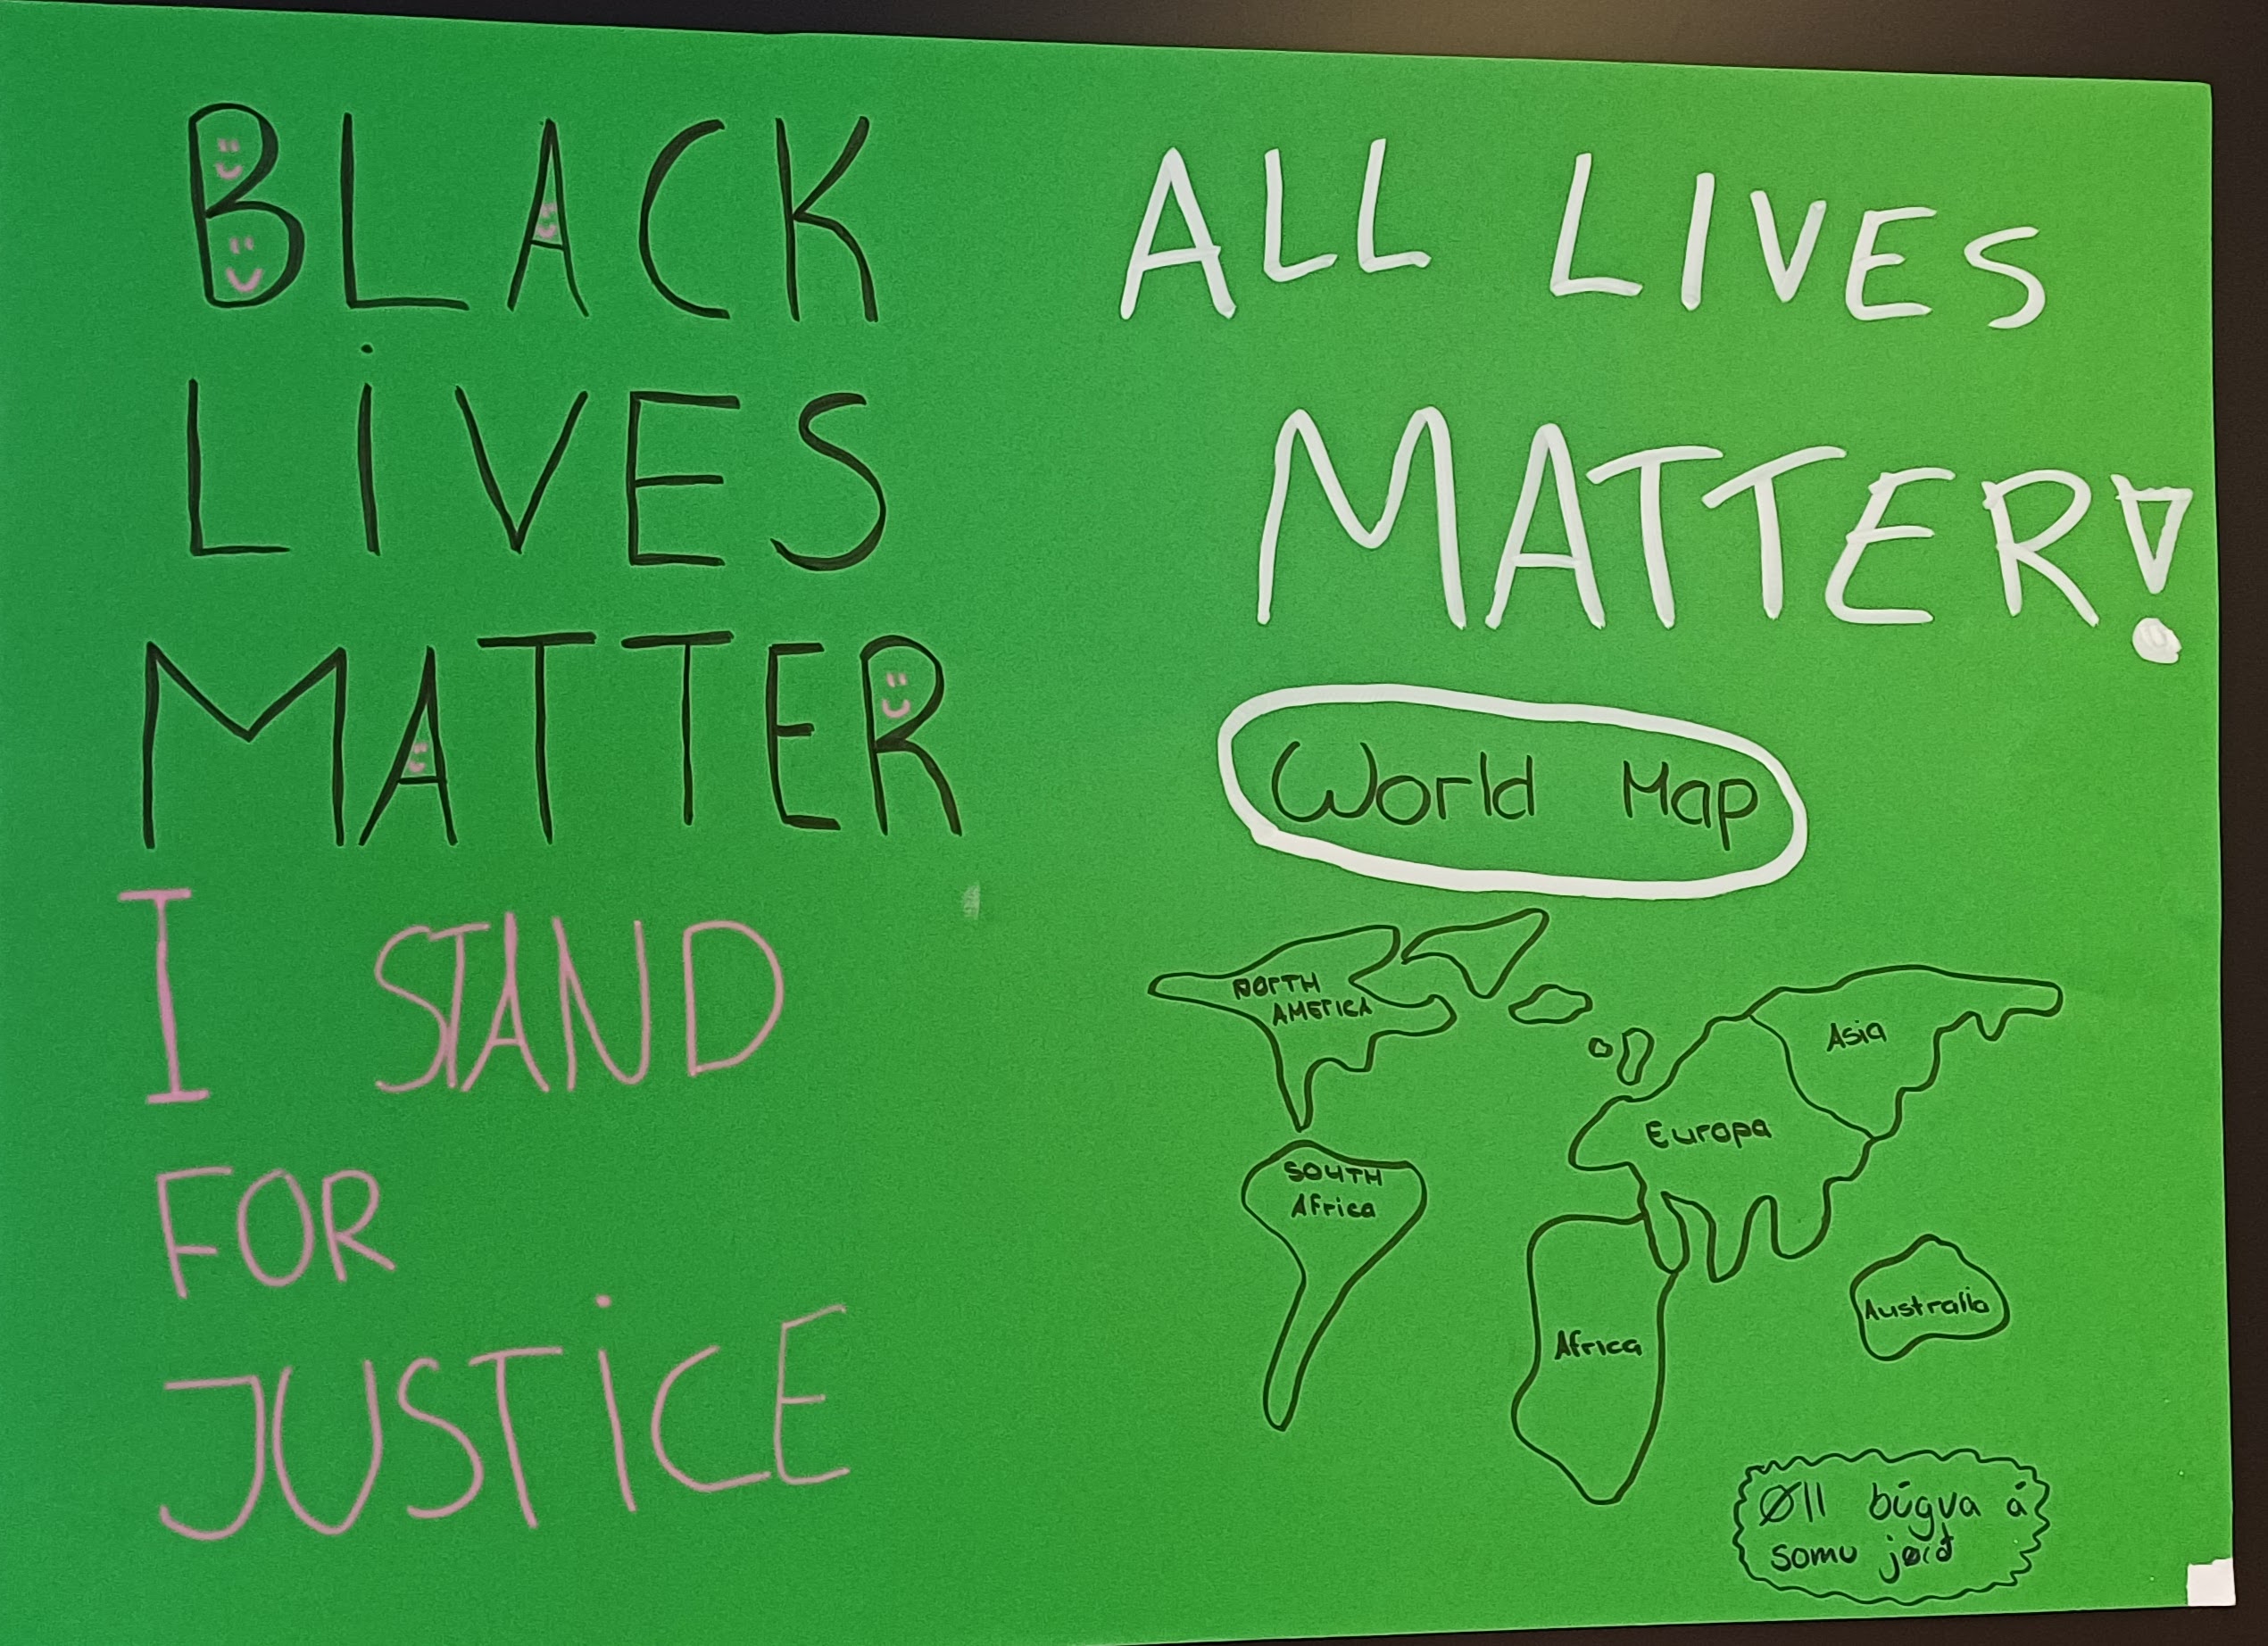 BLACK
LiVES
MATTER
I STAND
FOR
JUSTiCE
ALL LIVES
MATTER!
World Map
NORTH
AMERICA
Asia
Europa
SOUTH
Africa
Africa
Australia
Øll búgva á
somu jørð